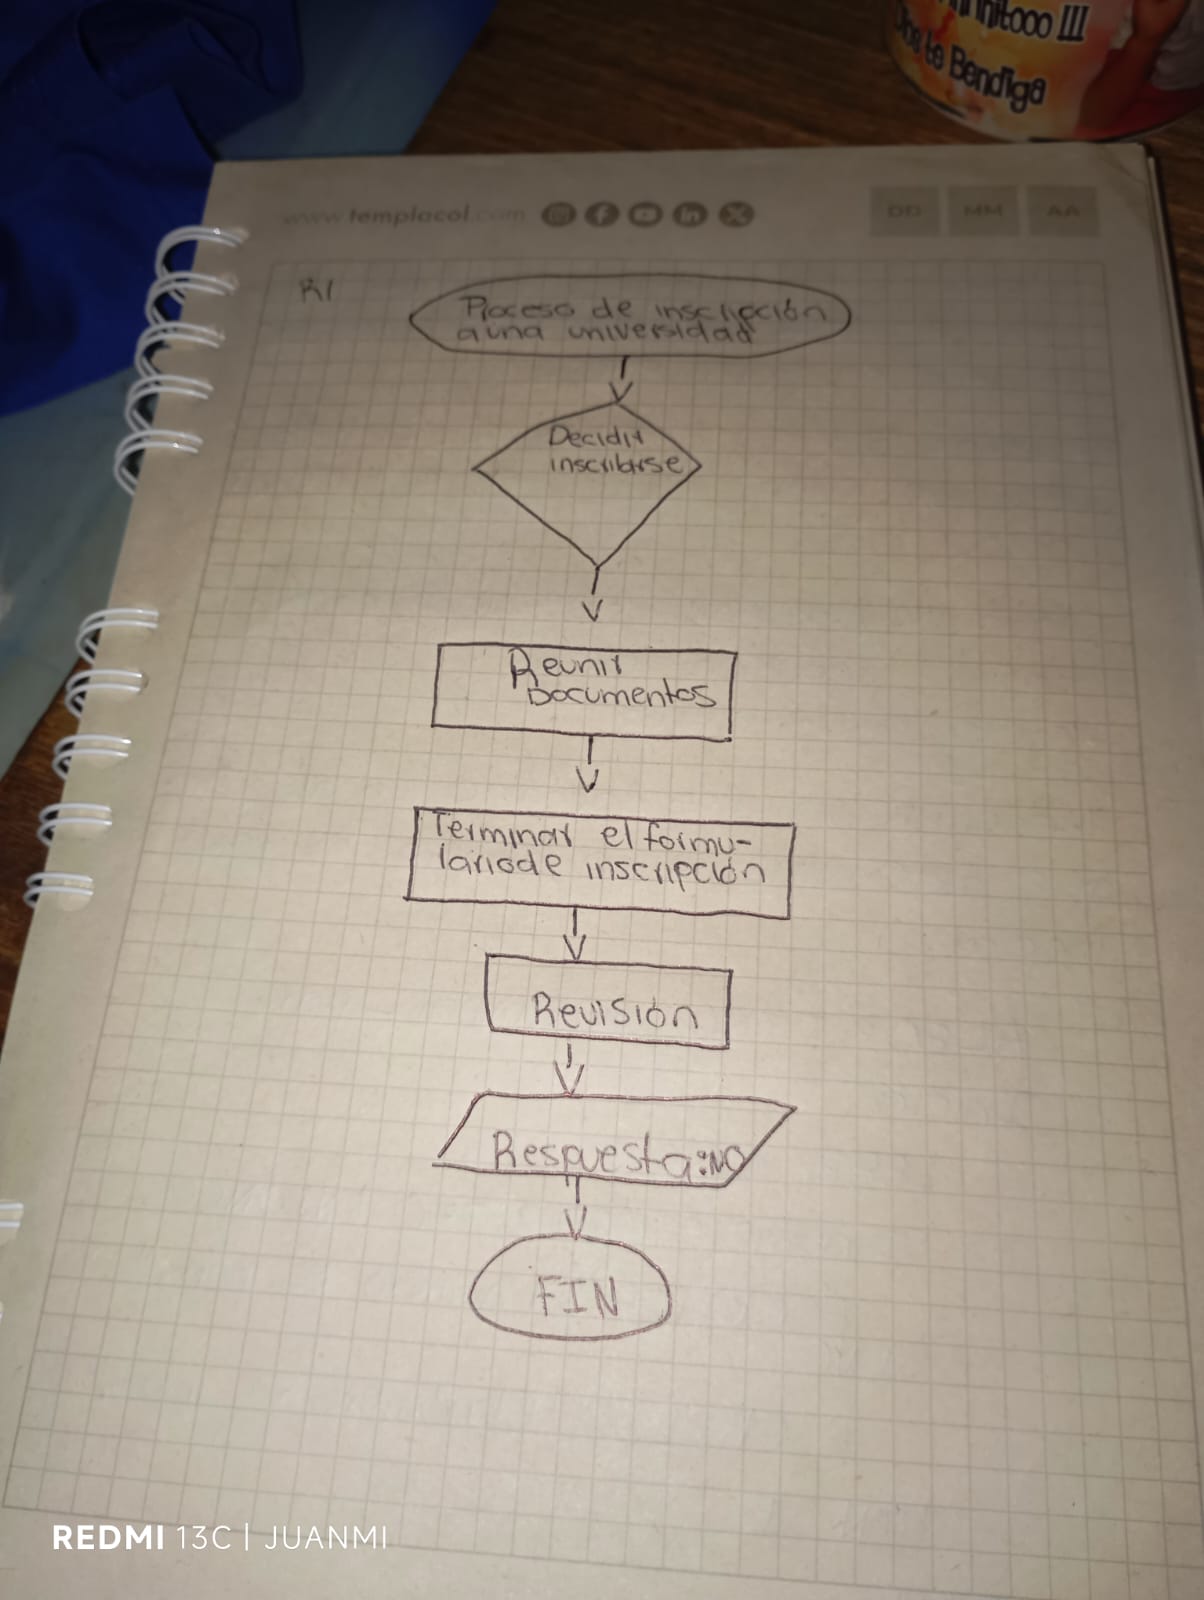 nhitooo III
Dios te Bendiga
www.templacol.com
DD MM AA
R1
Proceso de inscripción
a una universidad
Decidir
inscribirse
Reunir
Documentos
Terminar el formu-
lario de inscripción
Revisión
Respuesta:NO
FIN
REDMI 13C | JUANMI